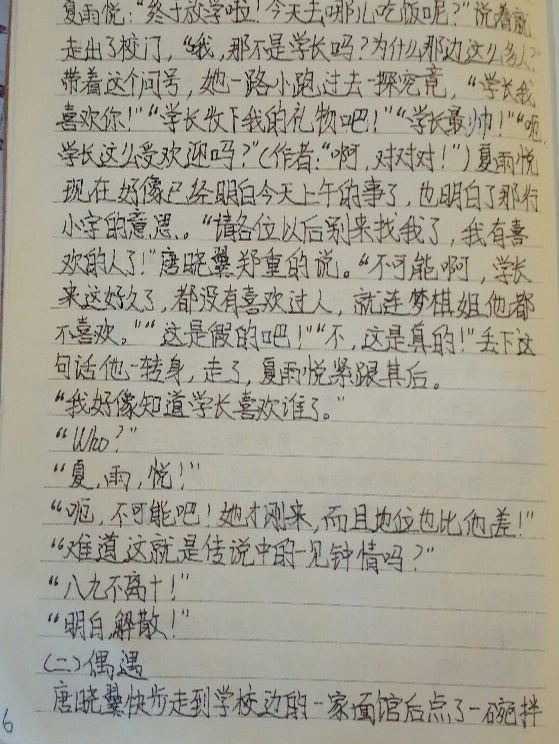 夏雨悦：“终于放学啦！今天去哪儿吃饭呢？”说着就
走出了校门，“哦，那不是学长吗？为什么那边这么多人？”
带着这个问号，她一路小跑过去一探究竟，“学长我
喜欢你！”“学长收下我的礼物吧！”“学长最帅！”“呃，
学长这么受欢迎吗？”（作者：“啊，对对对！”）夏雨悦
现在好像已经明白今天上午的事了，也明白了那行
小字的意思。“请各位以后别来找我了，我有喜
欢的人了！”唐晓翼郑重的说。“不可能啊，学长
来这好久了，都没有喜欢过人，就连梦棋姐他都
不喜欢。”“这是假的吧！”“不，这是真的！”丢下这
句话他一转身，走了，夏雨悦紧跟其后。
“我好像知道学长喜欢谁了。”
“Who？”
“夏，雨，悦！”
“呃，不可能吧！她才刚来，而且地位也比他差！”
“难道这就是传说中的一见钟情吗？”
“八九不离十！”
“明白，解散！”
（二）偶遇
唐晓翼快步走到学校边的一家面馆后点了一碗拌
6